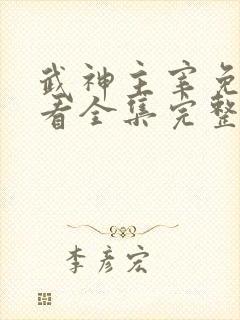 武神主宰免
看全集完整
李彦宏